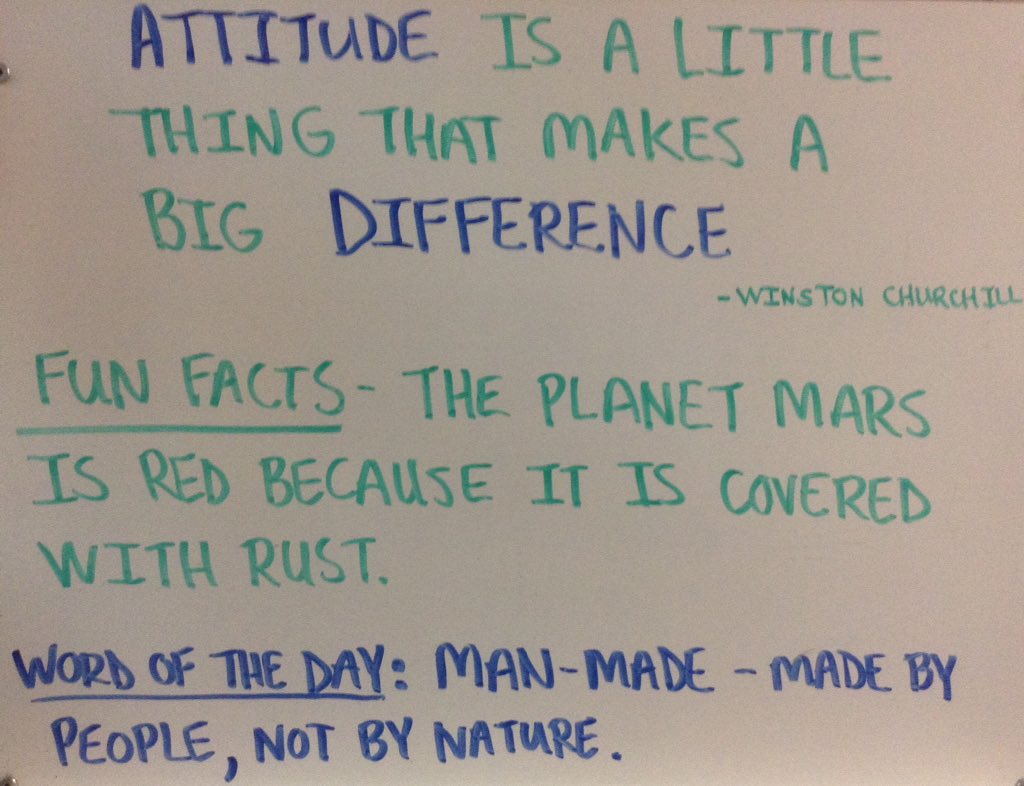 ATTITUDE IS A LITTLE
THING THAT MAKES A
BIG DIFFERENCE
-WINSTON CHURCHILL
FUN FACTS- THE PLANET MARS
IS RED BECAUSE IT IS COVERED
WITH RUST.
WORD OF THE DAY: MAN-MADE - MADE BY
PEOPLE, NOT BY NATURE.